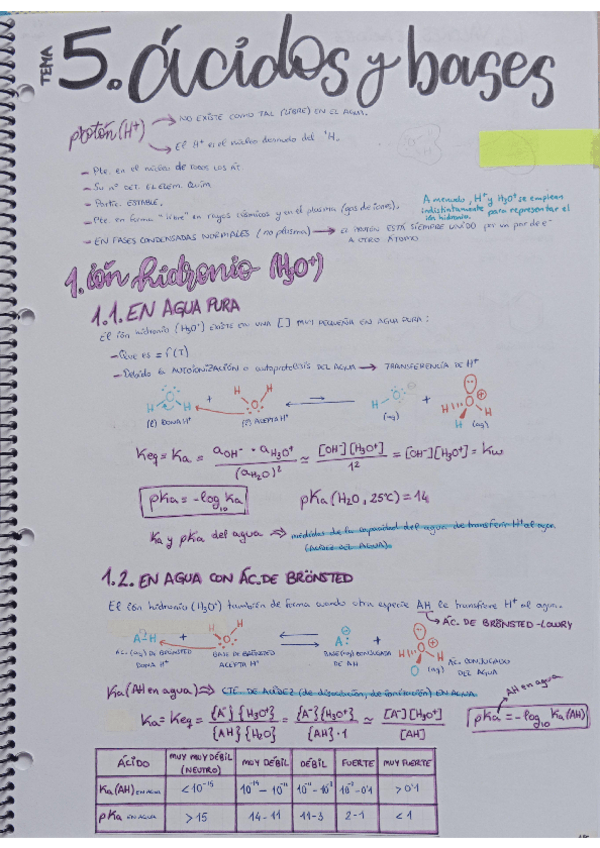 TEMA 5. ácidos y bases
protón (H⁺) → NO EXISTE COMO TAL (LIBRE) EN EL AGUA.
→ El H⁺ es el núcleo desnudo del ¹H.
- Pte. en el núcleo de todos los át.
- Su nº det. el elem. quím.
- Partíc. ESTABLE.
- Pte. en forma "libre" en rayos cósmicos y en el plasma (gas de iones).
A menudo, H⁺ y H₃O⁺ se emplean
indistintamente para representar el
ión hidronio.
- EN FASES CONDENSADAS NORMALES (no plasma) → EL PROTÓN ESTÁ SIEMPRE UNIDO por un par de e⁻
A OTRO ÁTOMO
1. ión hidronio (H₃O⁺)
1.1. EN AGUA PURA
El ión hidronio (H₃O⁺) existe en una [ ] MUY PEQUEÑA EN AGUA PURA:
- Que es = f (T)
- Debido a AUTOIONIZACIÓN o autoprotólisis DEL AGUA → TRANSFERENCIA DE H⁺
H O H + H O H ⇌ H-O⁻ + H O H H ⊕
(l) DONA H⁺ (l) ACEPTA H⁺ (aq) (aq)
Keq = Ka = aOH⁻ · aH₃O⁺ / (aH₂O)² ≃ [OH⁻][H₃O⁺] / 1² = [OH⁻][H₃O⁺] = Kw
pKa = -log₁₀ Ka pKa (H₂O, 25ºC) = 14
Ka y pKa del agua ⇒ medidas de la capacidad del agua de transferir H⁺ al agua
(ACIDEZ DEL AGUA).
1.2. EN AGUA CON ÁC. DE BRÖNSTED
El ión hidronio (H₃O⁺) también se forma cuando otra especie AH le transfiere H⁺ al agua.
→ ÁC. DE BRÖNSTED-LOWRY
A-H + H O H ⇌ A⁻ + H O H H ⊕
ÁC. (aq) DE BRÖNSTED BASE DE BRÖNSTED BASE (aq) CONJUGADA ÁC. CONJUGADO
DONA H⁺ ACEPTA H⁺ DE AH (aq) DEL AGUA
Ka (AH en agua) ⇒ CTE. DE ACIDEZ (de disociación, de ionización) EN AGUA
AH en agua
Ka = Keq = {A⁻}{H₃O⁺} / {AH}{H₂O} = {A⁻}{H₃O⁺} / {AH}·1 ≃ [A⁻][H₃O⁺] / [AH]
pKa = -log₁₀ Ka (AH)
ÁCIDO MUY MUY DÉBIL (NEUTRO) MUY DÉBIL DÉBIL FUERTE MUY FUERTE
Ka (AH) EN AGUA < 10⁻¹⁵ 10⁻¹⁴ - 10⁻¹¹ 10⁻¹¹ - 10⁻³ 10⁻² - 0'1 > 0'1
pKa EN AGUA > 15 14-11 11-3 2-1 < 1